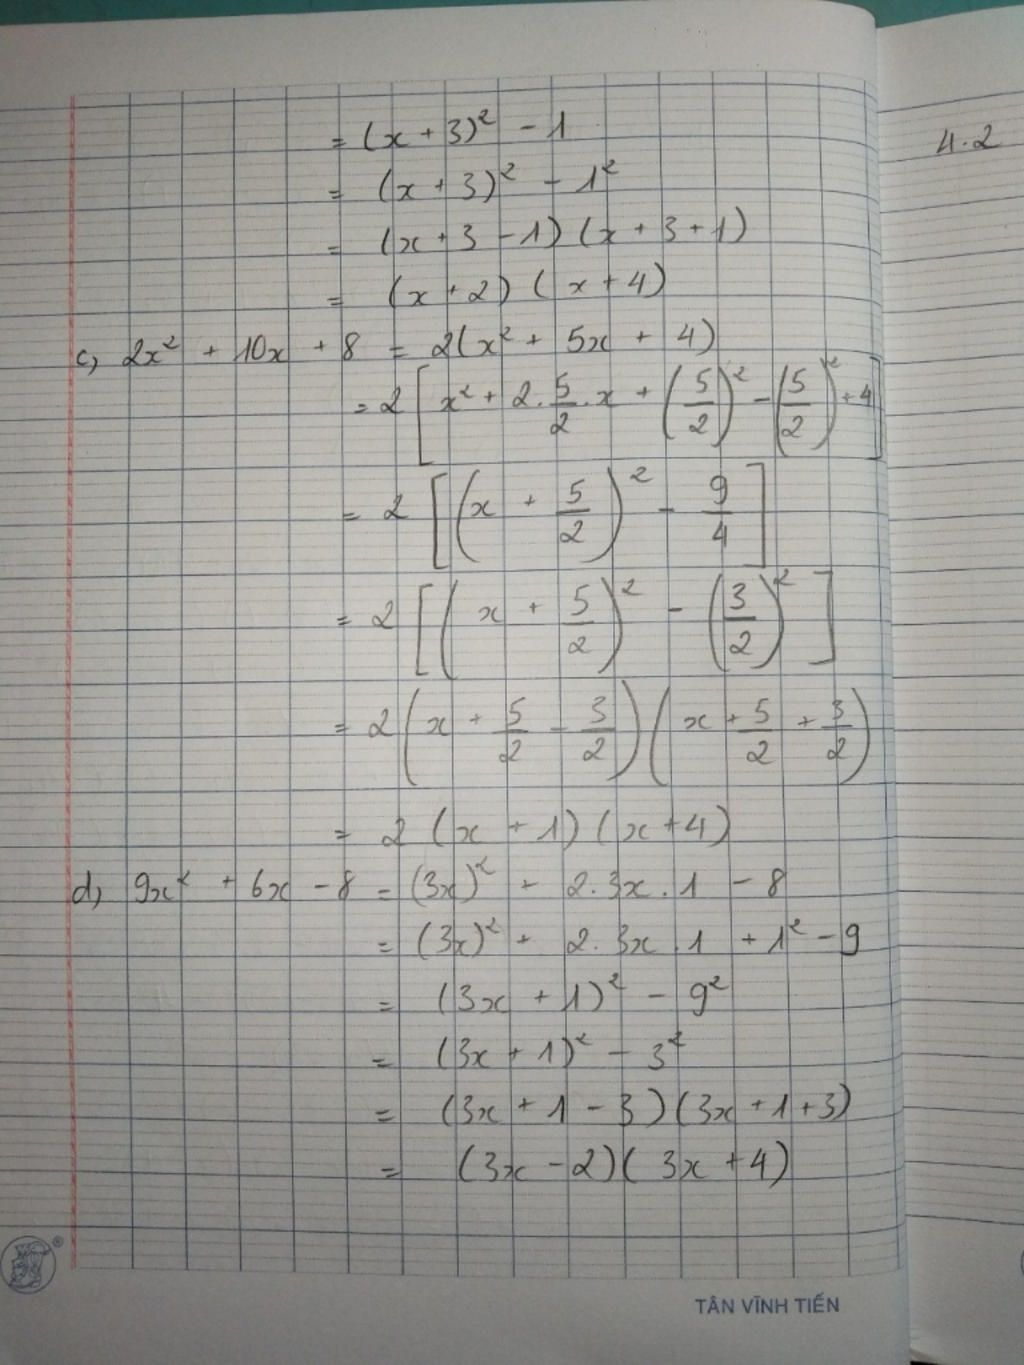 = (x + 3)² - 1
= (x + 3)² - 1²
= (x + 3 - 1) (x + 3 + 1)
= (x + 2) (x + 4)
c, 2x² + 10x + 8 = 2(x² + 5x + 4)
= 2 [x² + 2 . 5/2 . x + (5/2)² - (5/2)² + 4]
= 2 [(x + 5/2)² - 9/4]
= 2 [(x + 5/2)² - (3/2)²]
= 2 (x + 5/2 - 3/2) (x + 5/2 + 3/2)
= 2 (x + 1) (x + 4)
d, 9x² + 6x - 8 = (3x)² + 2 . 3x . 1 - 8
= (3x)² + 2 . 3x . 1 + 1² - 9
= (3x + 1)² - 9²
= (3x + 1)² - 3²
= (3x + 1 - 3) (3x + 1 + 3)
= (3x - 2) (3x + 4)
TÂN VĨNH TIẾN
®
4.2